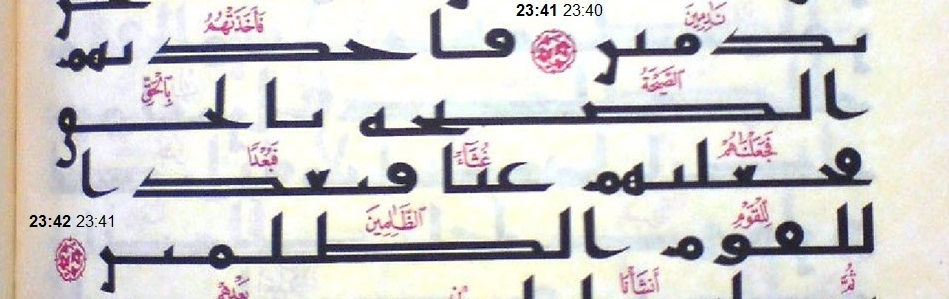 23:41 23:40
نَادِمِينَ فَأَخَذَتْهُمُ
ندمين فاخذتهم
الصَّيْحَةُ بِالْحَقِّ
الصيحه بالحق
فَجَعَلْنَاهُمْ غُثَاءً فَبُعْدًا
فجعلنهم غثا فبعدا
23:42 23:41
لِلْقَوْمِ الظَّالِمِينَ
للقوم الظلمين
ثُمَّ أَنْشَأْنَا مِنْ بَعْدِهِمْ